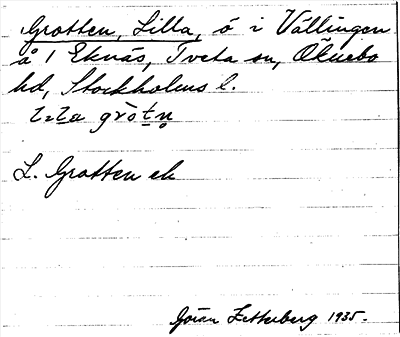 Grotten, Lilla, ö i Vällingen
å 1 Eknäs, Tveta sn, Öknebo
hd, Stockholms l.
L. Grotten ek
Göran Zetterberg 1935.